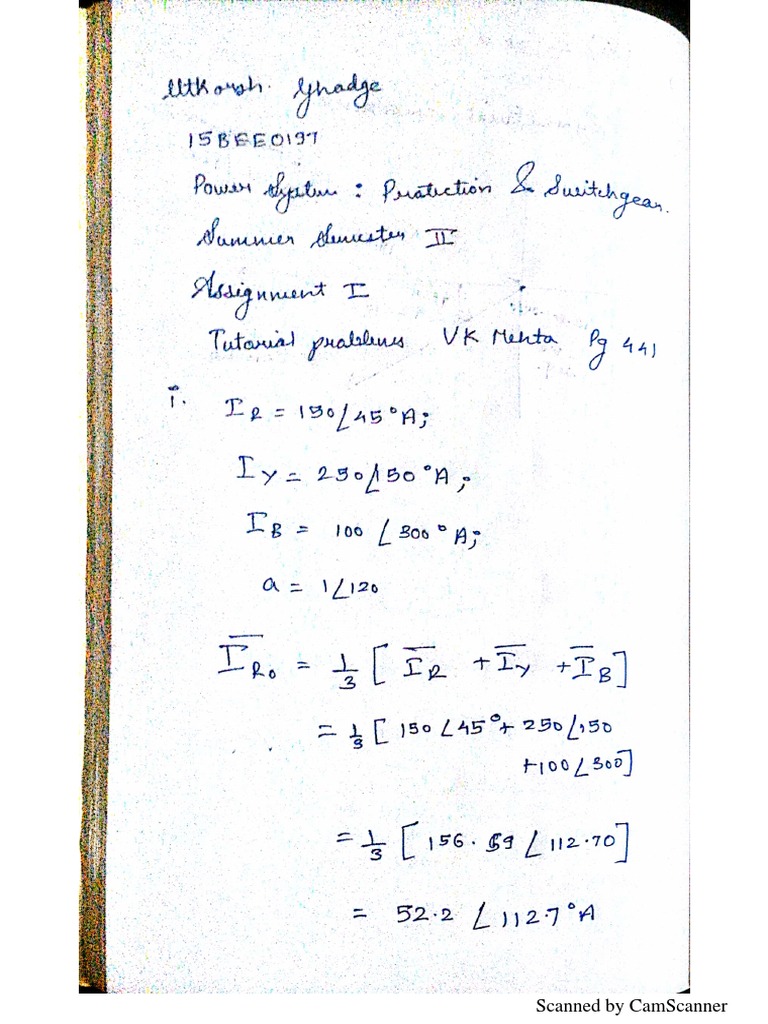 Utkarsh. Ghadge
15BEE0197
Power System : Protection & Switchgear.
Summer Semester II
Assignment I
Tutorial problems VK Mehta Pg 441
i. I_R = 150∠45°A;
I_Y = 250∠150°A;
I_B = 100∠300°A;
a = 1∠120
I̅_R0 = 1/3 [ I̅_R + I̅_Y + I̅_B ]
= 1/3 [ 150∠45° + 250∠150
+100∠300]
= 1/3 [ 156.59∠112.70]
= 52.2∠112.7°A
Scanned by CamScanner